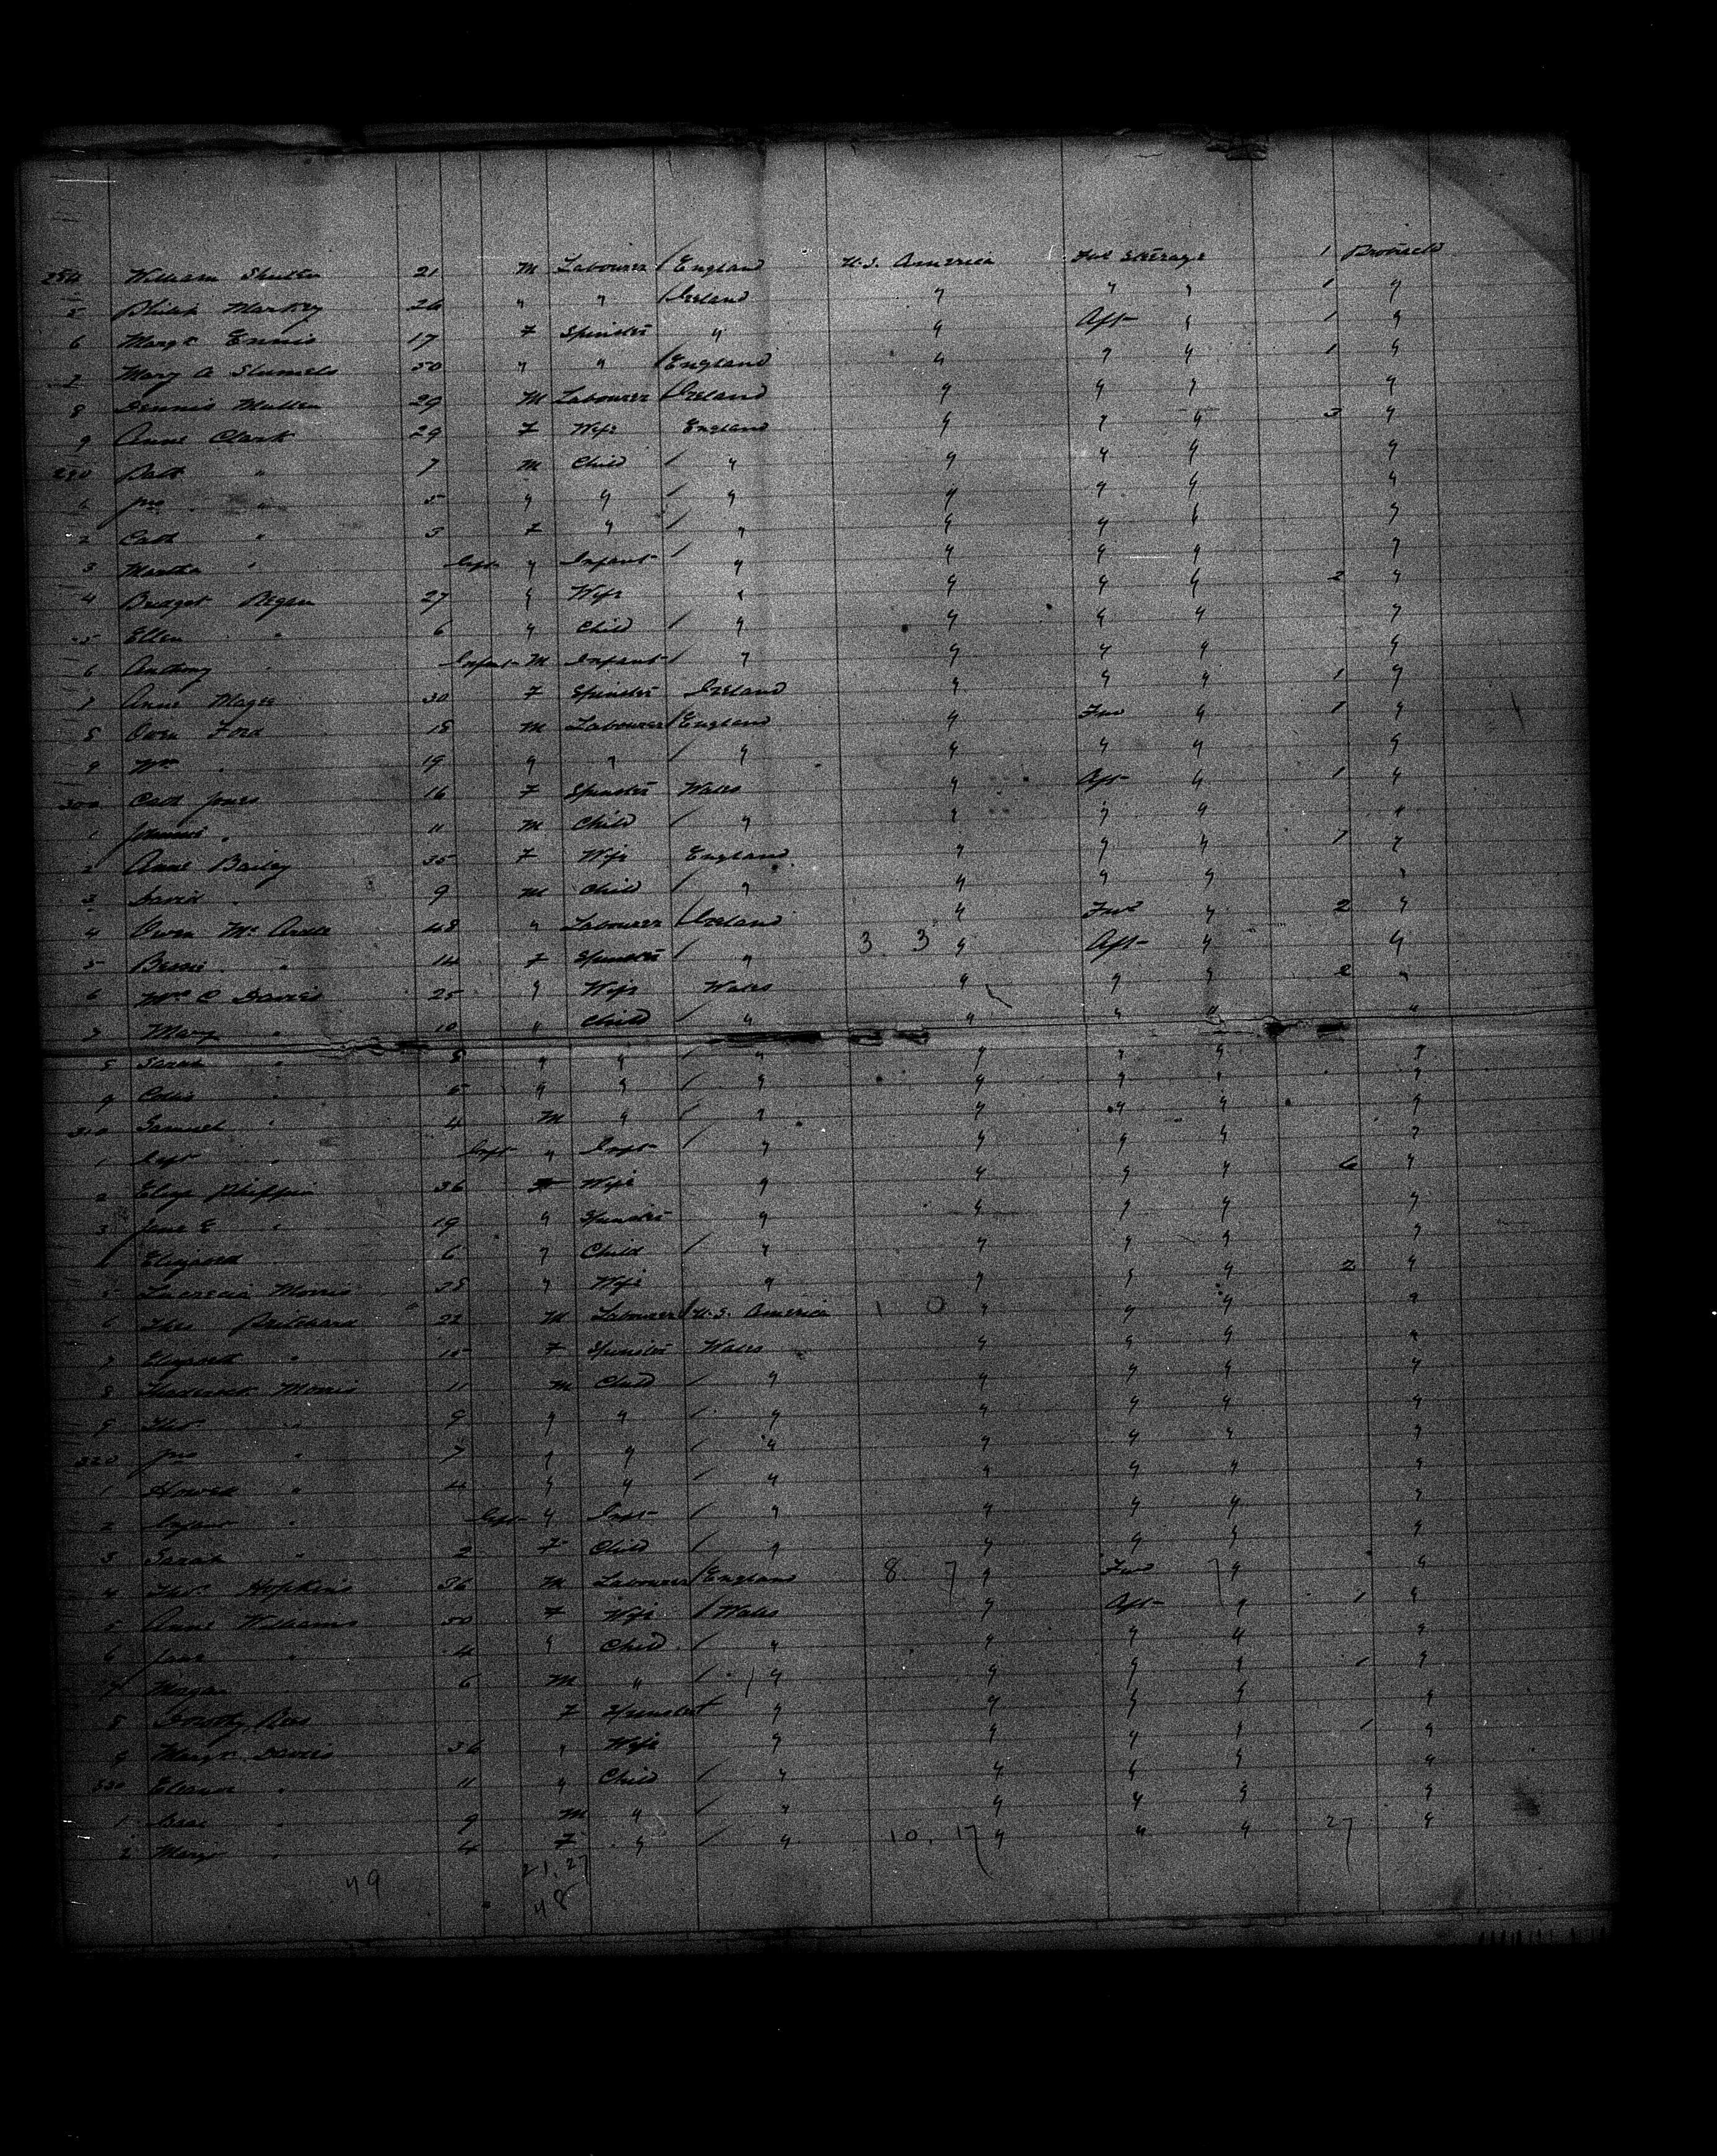 284 William Shutten 21 M Labourer / England U.S. America Fwd Steerage 1 Protracted
5 Philip Markey 26 " " / Ireland " " " 1 "
6 Margt Ennis 17 F Spinster " " Aft " 1 "
7 Mary A 50 " " / England " " " 1 "
8 Dennis Mullen 29 M Labourer / Ireland " " " "
9 Anne Clark 29 F Wife England " " " 3 "
290 Patk " 7 M Child / " " " " "
1 Jno " 5 " " / " " " " "
2 Cath " 3 F " / " " " " "
3 Martha " Inft " Infant / " " " " "
4 Bridget Regan 27 " Wife " " " " 2 "
5 Ellen " 6 " Child / " " " " "
6 Anthony " Infant M Infant / " " " " "
7 Anne Magee 30 F Spinster Ireland " " " 1 "
8 Owen Ford 18 M Labourer / England " Fwd " 1 "
9 Wm " 19 " " / " " " " "
300 Cath Jones 16 F Spinster Wales " Aft " 1 "
1 " 11 M Child / " " " " "
2 Anne Bailey 35 F Wife England " " " 1 "
3 David " 9 M Child / " " " " "
4 Owen Mc 48 " Labourer / Ireland " Fwd " 2 "
5 Bessie " 14 F Spinster / " 3 3 " Aft " "
6 Mrs C Davies 25 " Wife Wales " " " 2 "
7 Mary " 10 " Child / " " " " "
8 Sarah " 8 " " / " " " " "
9 " 5 " " / " " " " "
310 Samuel " 4 M " / " " " " "
1 Inft " Inft " Inft / " " " " "
2 Eliza 36 F Wife " " " " 6 "
3 Jane E " 19 " Spinster " " " " "
4 6 " Child / " " " " "
5 Morris 38 " Wife " " " " 2 "
6 Thos Pritchard 22 M Labourer / U.S. America 1 0 " " " "
7 Elizabeth " 15 F Spinster Wales " " " "
8 Frederick Morris 11 M Child / " " " " "
9 Thos " 9 " " / " " " " "
320 Jno " 7 " " / " " " " "
1 Howell " 4 " " / " " " " "
2 Infant " Inft " Inft / " " " " "
3 Sarah " 2 F Child / " " " " "
4 Thos Hopkins 36 M Labourer / England 8 7 " Fwd " "
5 Anne Williams 50 F Wife / Wales " Aft " 1 "
6 Jane " 4 " Child / " " " " "
7 6 M " / " " " " 1 "
8 Dorothy Rees F Spinster " " " " "
9 Margt Davies 36 " Wife " " " " 1 "
330 Eleanor " 11 " Child / " " " " "
1 " 9 M " / " " " " "
2 Margt " 4 F " / " 10. 17 " " " 27 "
49 21. 27
48